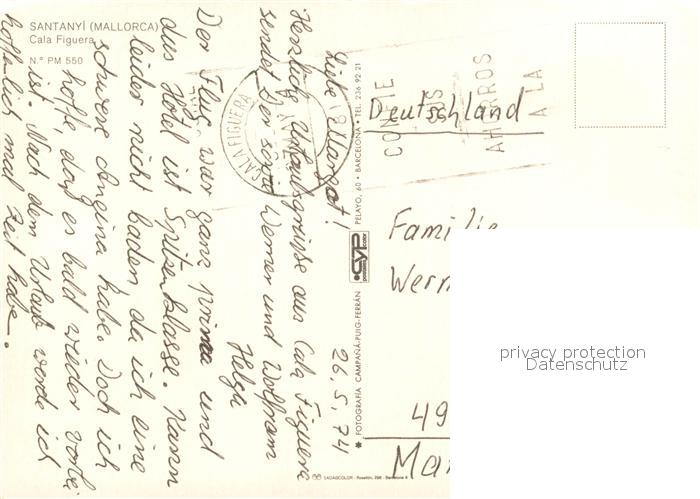 SANTANYÍ (MALLORCA)
Cala Figuera
N.º PM 550
26.5.74
Liebe Margot!
Herzliche Urlaubsgrüße aus Cala Figuera
sendet Dir sowie Werner und Wolfram
Helga
Der Flug war ganz prima und
das Hotel ist Spitzenklasse. Kann
leider nicht baden, da ich eine
schwere Angina habe. Doch ich
hoffe, daß es bald wieder vorbei
ist. Nach dem Urlaub werde ich
hoffentlich mal Zeit habe.
CALA FIGUERA
CONFIE
AHORROS
A LA
FOTOGRAFÍA CAMPAÑÁ-PUIG-FERRÁN
CYP
PELAYO, 60 • BARCELONA • TEL. 236 92 21
Deutschland
Familie
Wern
49
Ma
privacy protection
Datenschutz